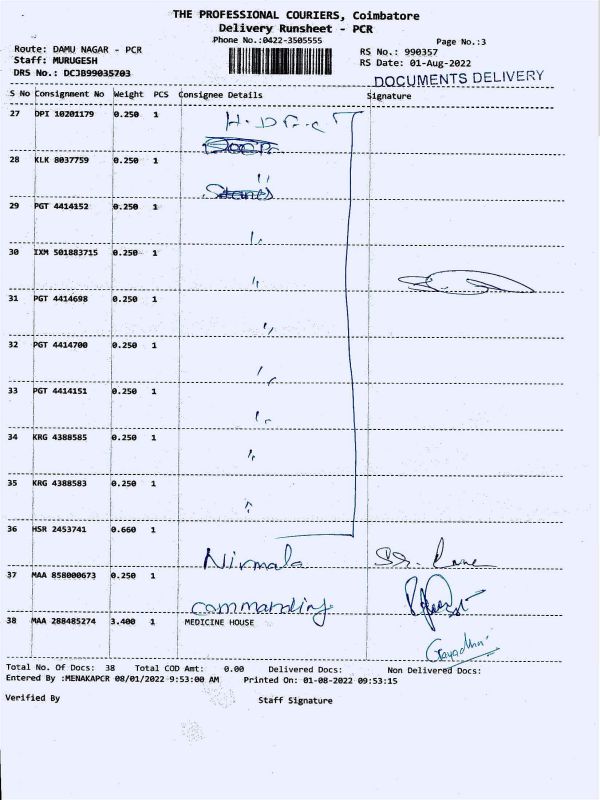 THE PROFESSIONAL COURIERS, Coimbatore
Delivery Runsheet - PCR
Phone No.:0422-3505555
Page No.:3
Route: DAMU NAGAR - PCR
RS No.: 990357
Staff: MURUGESH
RS Date: 01-Aug-2022
DRS No.: DCJB99035703
DOCUMENTS DELIVERY
S No Consignment No Weight PCS Consignee Details Signature
27 DPI 10201179 0.250 1
28 KLK 8037759 0.250 1 "
29 PGT 4414152 0.250 1 "
30 IXM 501883715 0.250 1 "
31 PGT 4414698 0.250 1 "
32 PGT 4414700 0.250 1 "
33 PGT 4414151 0.250 1 "
34 KRG 4388585 0.250 1 "
35 KRG 4388583 0.250 1 "
36 HSR 2453741 0.660 1 Nirmala
37 MAA 858000673 0.250 1 commanding
38 MAA 288485274 3.400 1 MEDICINE HOUSE
Total No. Of Docs: 38 Total COD Amt: 0.00 Delivered Docs: Non Delivered Docs:
Entered By :MENAKAPCR 08/01/2022 9:53:00 AM Printed On: 01-08-2022 09:53:15
Verified By Staff Signature